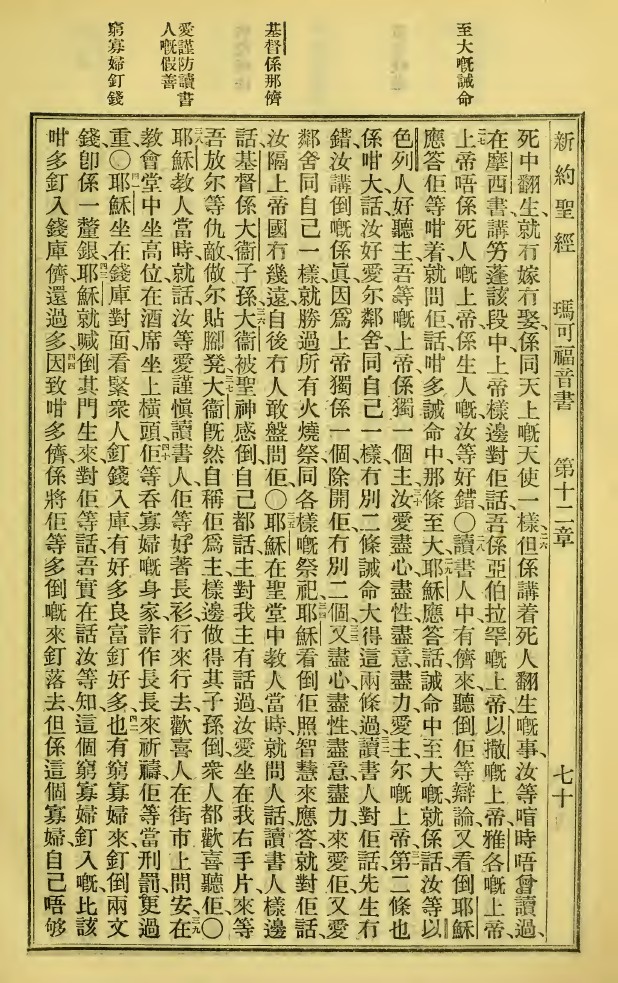 至大嘅誡命
基督係那儕
愛謹防讀書
人嘅假善
窮寡婦釘錢
新約聖經 瑪可福音書 第十二章 七十
死中翻生、就冇嫁冇娶、係同天上嘅天使一樣、二六但係講着死人翻生嘅事、汝等喑時唔曾讀過、
在摩西書講竻蓬該段中上帝樣邊對佢話、吾係亞伯拉罕嘅上帝、以撒嘅上帝、雅各嘅上帝、
二七上帝唔係死人嘅上帝、係生人嘅、汝等好錯〇二八讀書人中有儕來聽倒佢等辯論、又看倒耶穌
應答佢等咁着、就問佢話、咁多誡命中那條至大、二九耶穌應答話、誡命中至大嘅就係話、汝等以
色列人好聽、主吾等嘅上帝、係獨一個主、三十汝愛盡心盡性盡意盡力、愛主尔嘅上帝、三一第二條也
係咁大、話汝好愛尔鄰舍同自己一樣、冇別二條誡命大得這兩條過、三二讀書人對佢話、先生冇
錯、汝講倒嘅係眞、因爲上帝獨係一個、除開佢冇別二個、三三又盡心盡性盡意盡力來愛佢、又愛
鄰舍同自己一樣、就勝過所有火燒祭同各樣嘅祭祀、三四耶穌看倒佢照智慧來應答、就對佢話、
汝隔上帝國冇幾遠、自後冇人敢盤問佢〇三五耶穌在聖堂中教人當時、就問人話、讀書人樣邊
話基督係大衞子孫、三六大衞被聖神感倒、自己都話、主對我主有話過、汝愛坐在我右手片、來等
吾放尔等仇敵做尔貼腳凳、三七大衞旣然自稱佢爲主、樣邊做得其子孫倒、衆人都歡喜聽佢〇
三八耶穌教人當時、就話、汝等愛謹慎讀書人、佢等好著長衫、行來行去、歡喜人在街市上問安、三九在
教會堂中坐高位、在酒席坐上橫頭、四十佢等呑寡婦嘅身家、詐作長長來祈禱、佢等當刑罰更過
重〇四一耶穌坐在錢庫對面、看緊衆人釘錢入庫、有好多良富釘好多、四二也有窮寡婦來、釘倒兩文
錢、卽係一釐銀、四三耶穌就喊倒其門生來、對佢等話、吾實在話汝等知、這個窮寡婦釘入嘅、比該
咁多釘入錢庫儕還過多、四四因致咁多儕係將佢等多倒嘅來釘落去、但係這個寡婦自己唔够